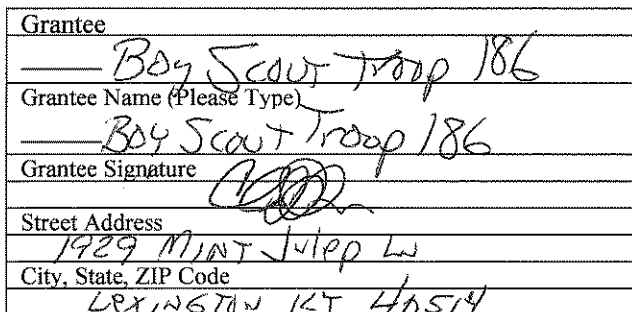 Grantee
Boy Scout Troop 186
Grantee Name (Please Type)
Boy Scout Troop 186
Grantee Signature
Street Address
1929 MINT Julep LN
City, State, ZIP Code
LEXINGTON KY 40514